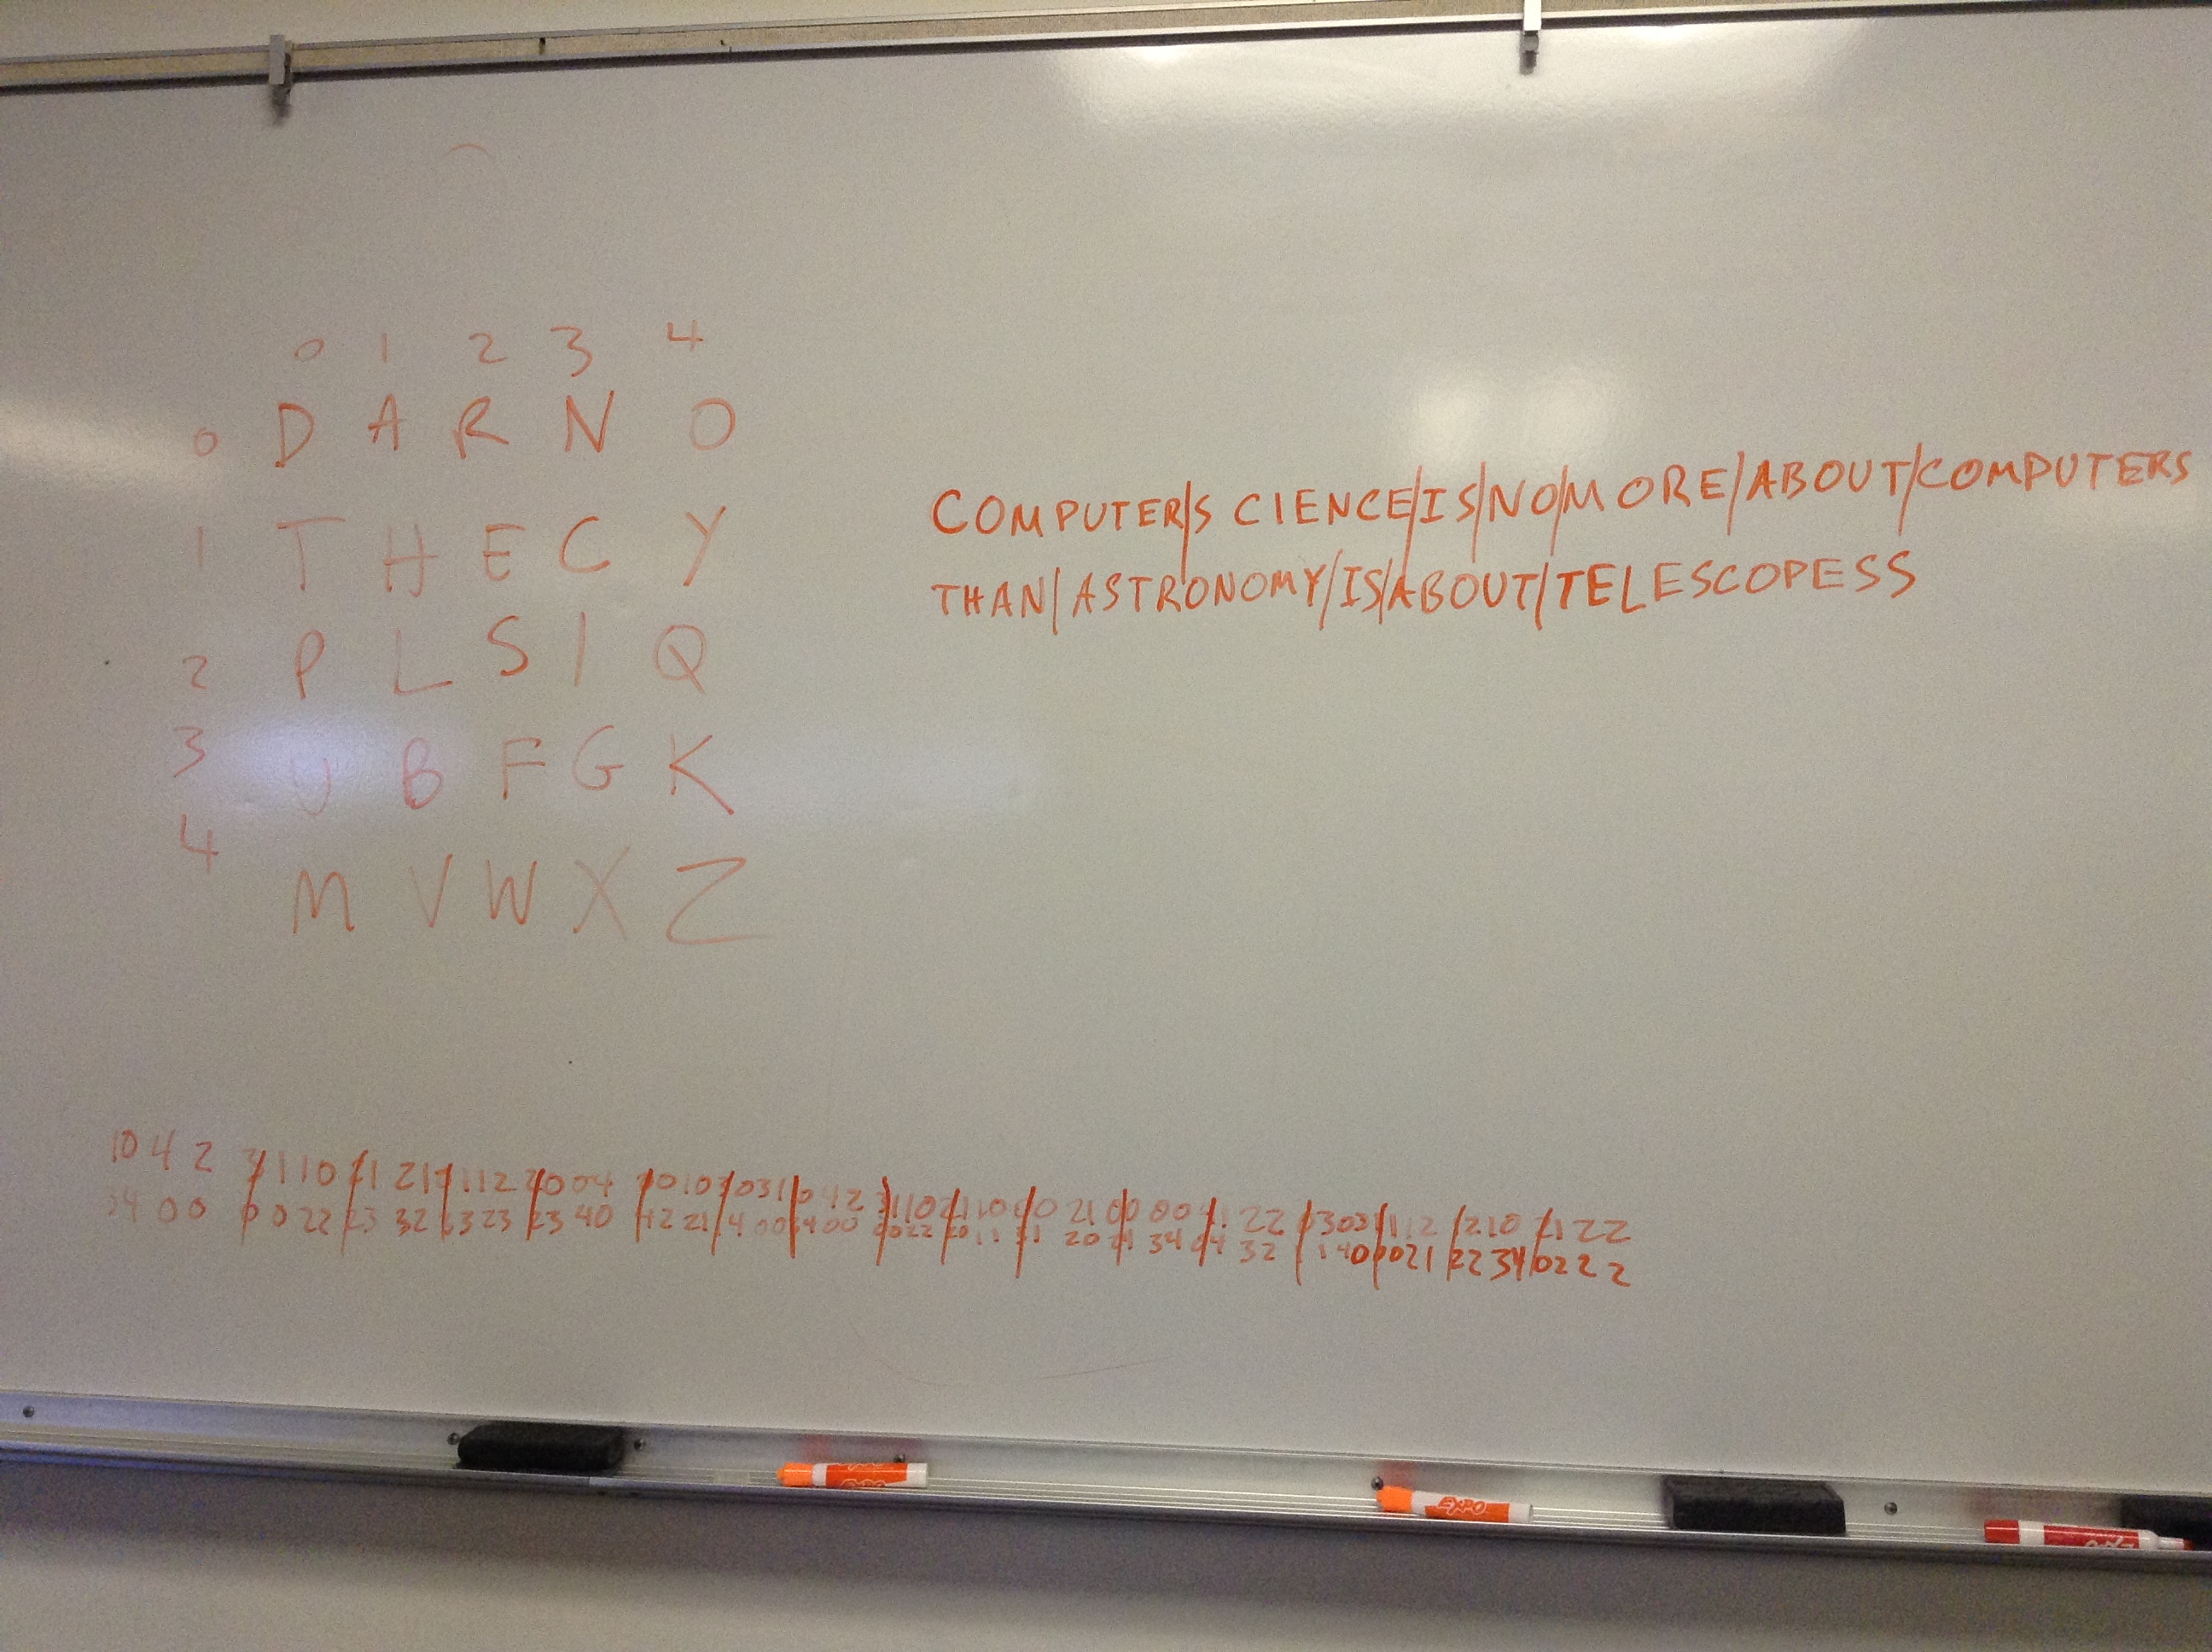 0 1 2 3 4
0 D A R N O
1 T H E C Y
2 P L S I Q
3 U B F G K
4 M V W X Z
COMPUTER/S CIENCE/IS/NO/MORE/ABOUT/COMPUTERS
THAN/ASTRONOMY/IS/ABOUT/TELESCOPESS
10 4 2 3/110/21 21/1112/2004 10103/0031/1042 3/1102/1101/0021 00/0004/1122 /303/112 /210 /2122
34 00 0/022/23 32/3323/2340 /42 21/400/3400 0022/2011/31 20/24 34/04 32 /140/0021/2234/0222
EXPO
EXPO